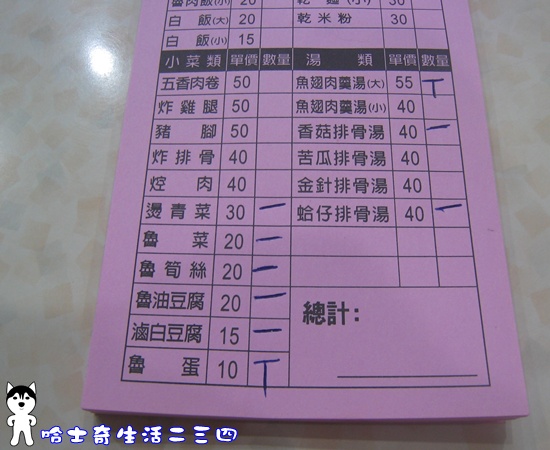 魯肉飯(小) 20 乾 麵(小) 30
白 飯(大) 20 乾米粉 30
白 飯(小) 15
小菜類 單價 數量 湯 類 單價 數量
五香肉卷 50 魚翅肉羹湯(大) 55 T
炸雞腿 50 魚翅肉羹湯(小) 40
豬 腳 50 香菇排骨湯 40 一
炸排骨 40 苦瓜排骨湯 40
焢 肉 40 金針排骨湯 40
燙青菜 30 一 蛤仔排骨湯 40 一
魯 菜 20 一
魯筍絲 20 一
魯油豆腐 20 一
滷白豆腐 15 一
魯 蛋 10 T
總計：
哈士奇生活二三四